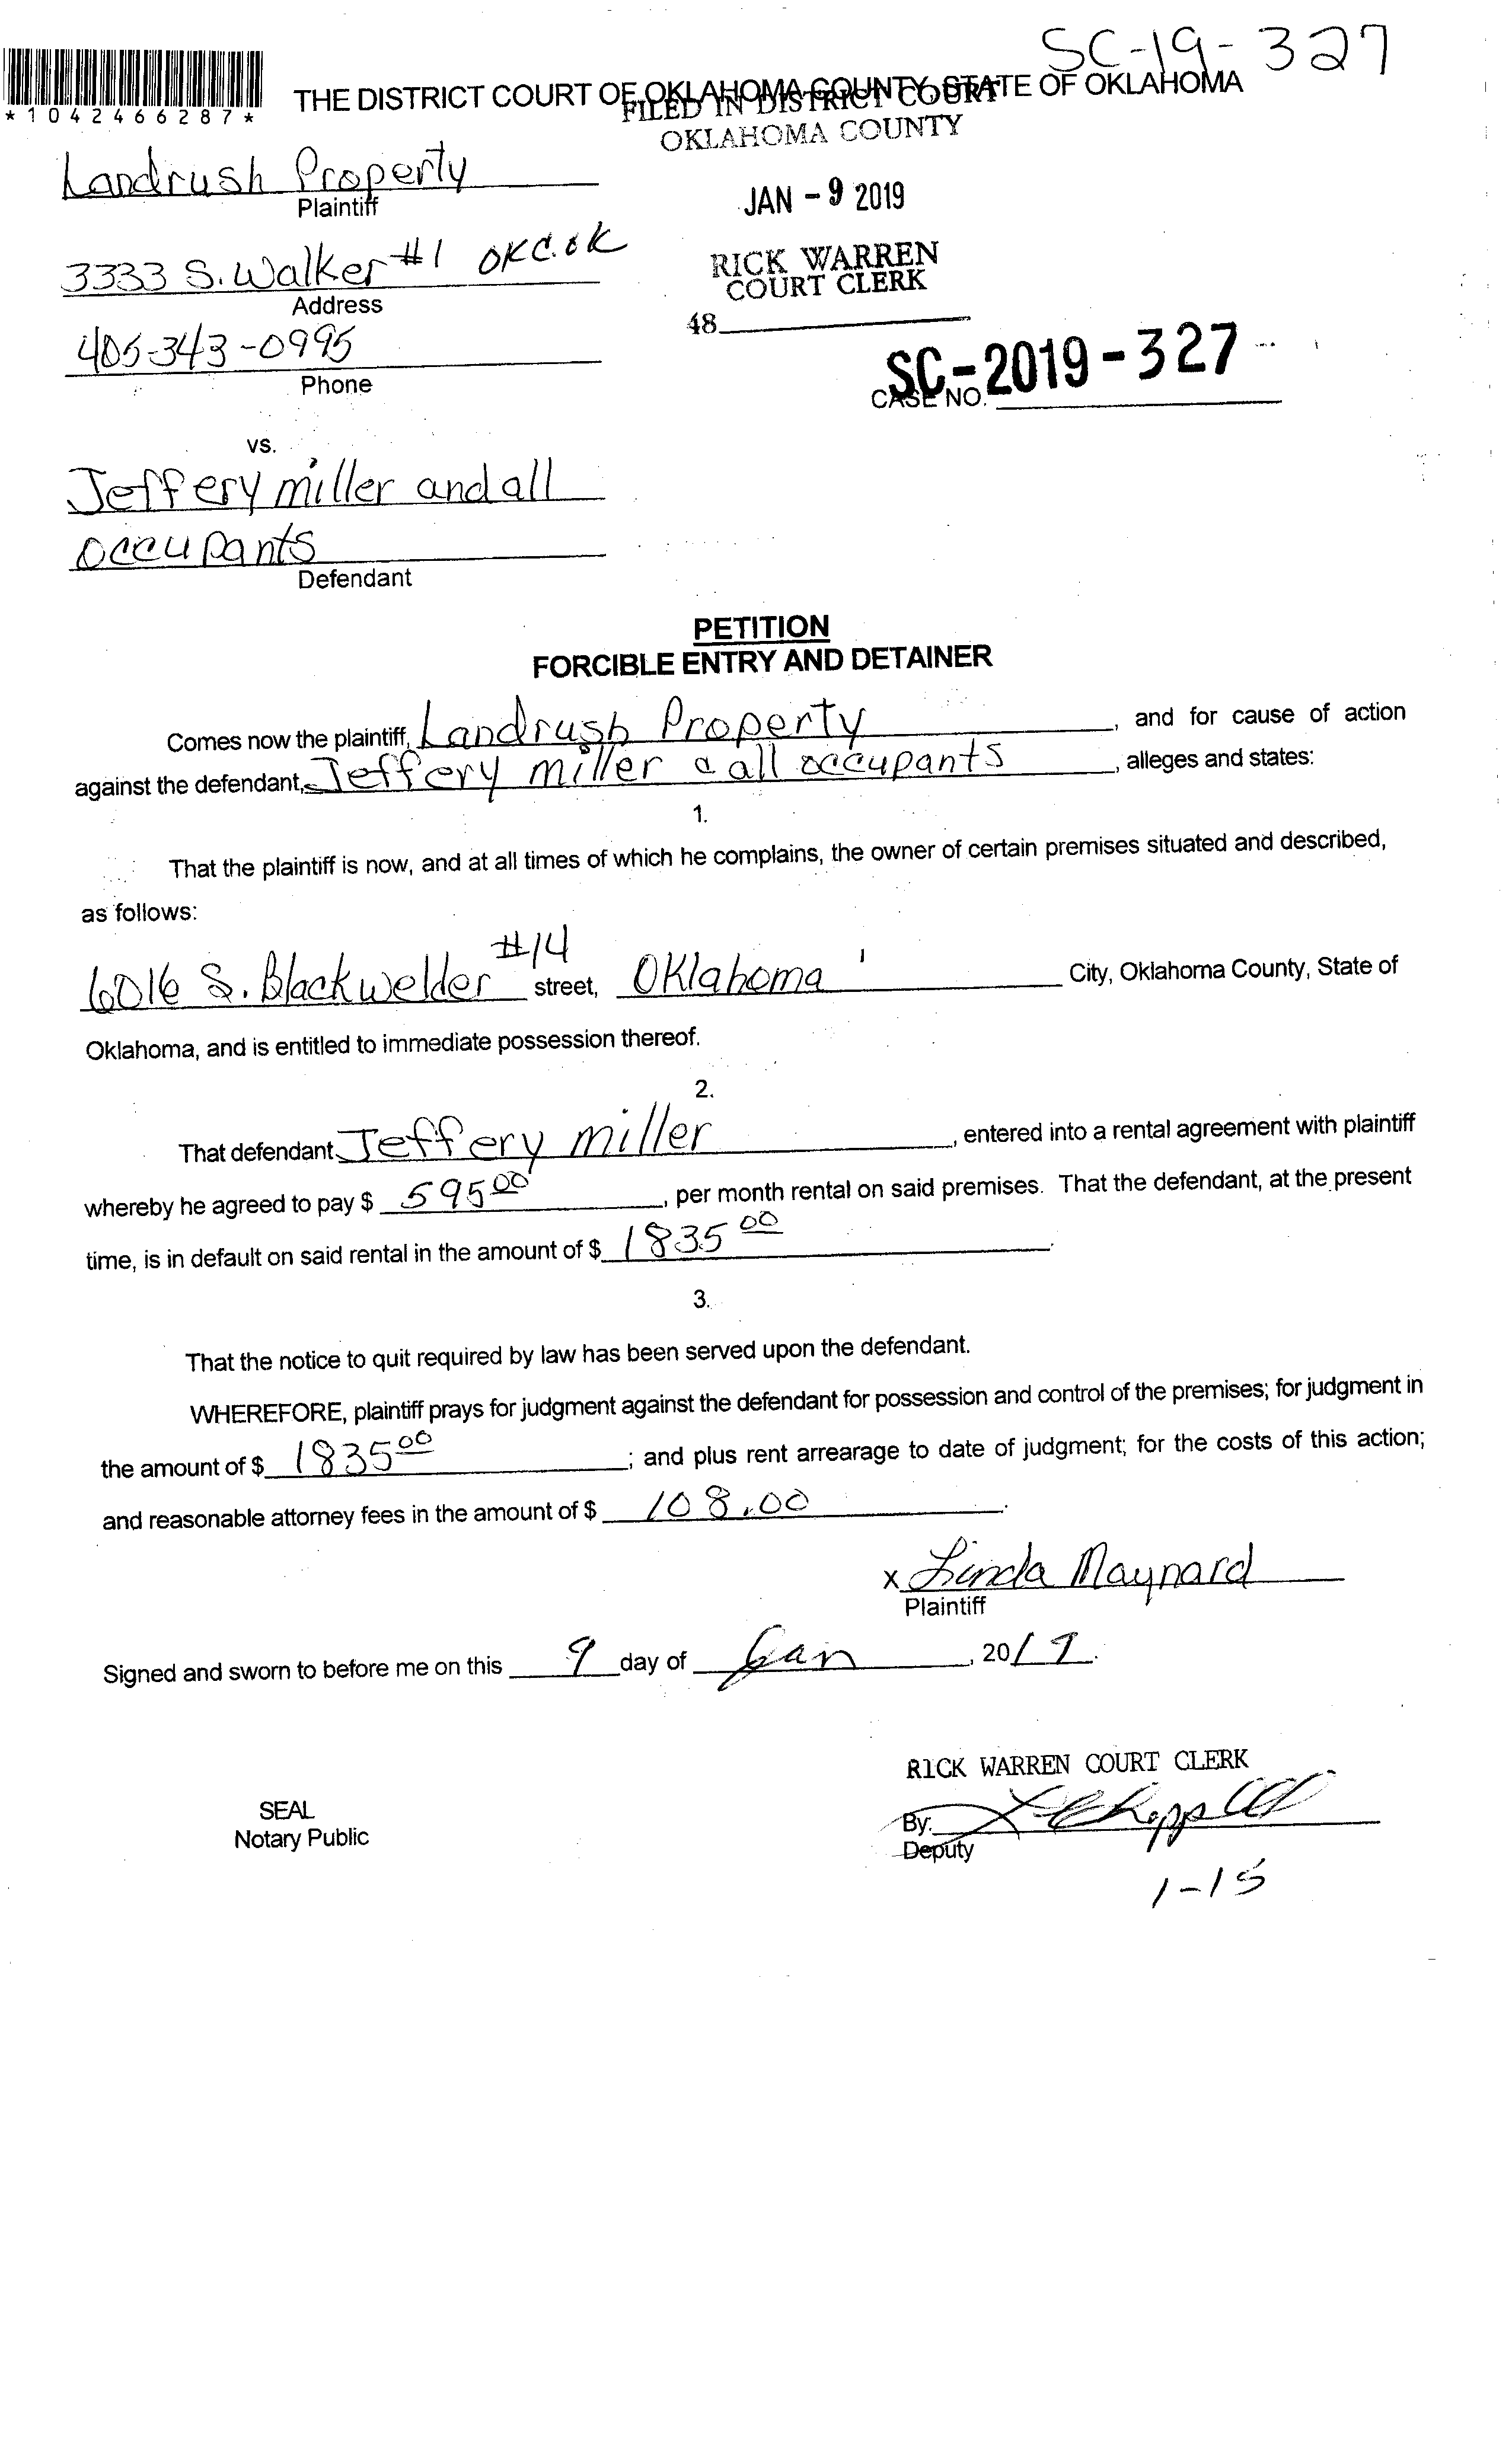 SC-19-327
*1042466287*
THE DISTRICT COURT OF OKLAHOMA COUNTY, STATE OF OKLAHOMA
FILED IN DISTRICT COURT
OKLAHOMA COUNTY
Landrush Property
Plaintiff
JAN - 9 2019
3333 S. Walker #1 OKC.OK
Address
RICK WARREN
COURT CLERK
48
405-343-0995
Phone
SC-2019-327
CASE NO.
vs.
Jeffery miller and all
occupants
Defendant
PETITION
FORCIBLE ENTRY AND DETAINER
Comes now the plaintiff, Landrush Property, and for cause of action
against the defendant, Jeffery miller & all occupants, alleges and states:
1.
That the plaintiff is now, and at all times of which he complains, the owner of certain premises situated and described,
as follows:
6016 S. Blackwelder #14 street, Oklahoma City, Oklahoma County, State of
Oklahoma, and is entitled to immediate possession thereof.
2.
That defendant Jeffery miller, entered into a rental agreement with plaintiff
whereby he agreed to pay $ 595 00, per month rental on said premises. That the defendant, at the present
time, is in default on said rental in the amount of $ 1835 00.
3.
That the notice to quit required by law has been served upon the defendant.
WHEREFORE, plaintiff prays for judgment against the defendant for possession and control of the premises; for judgment in
the amount of $ 1835 00; and plus rent arrearage to date of judgment; for the costs of this action;
and reasonable attorney fees in the amount of $ 108.00.
x Linda Maynard
Plaintiff
Signed and sworn to before me on this 9 day of Jan, 2019.
RICK WARREN COURT CLERK
SEAL
Notary Public
By:
Deputy
1-15